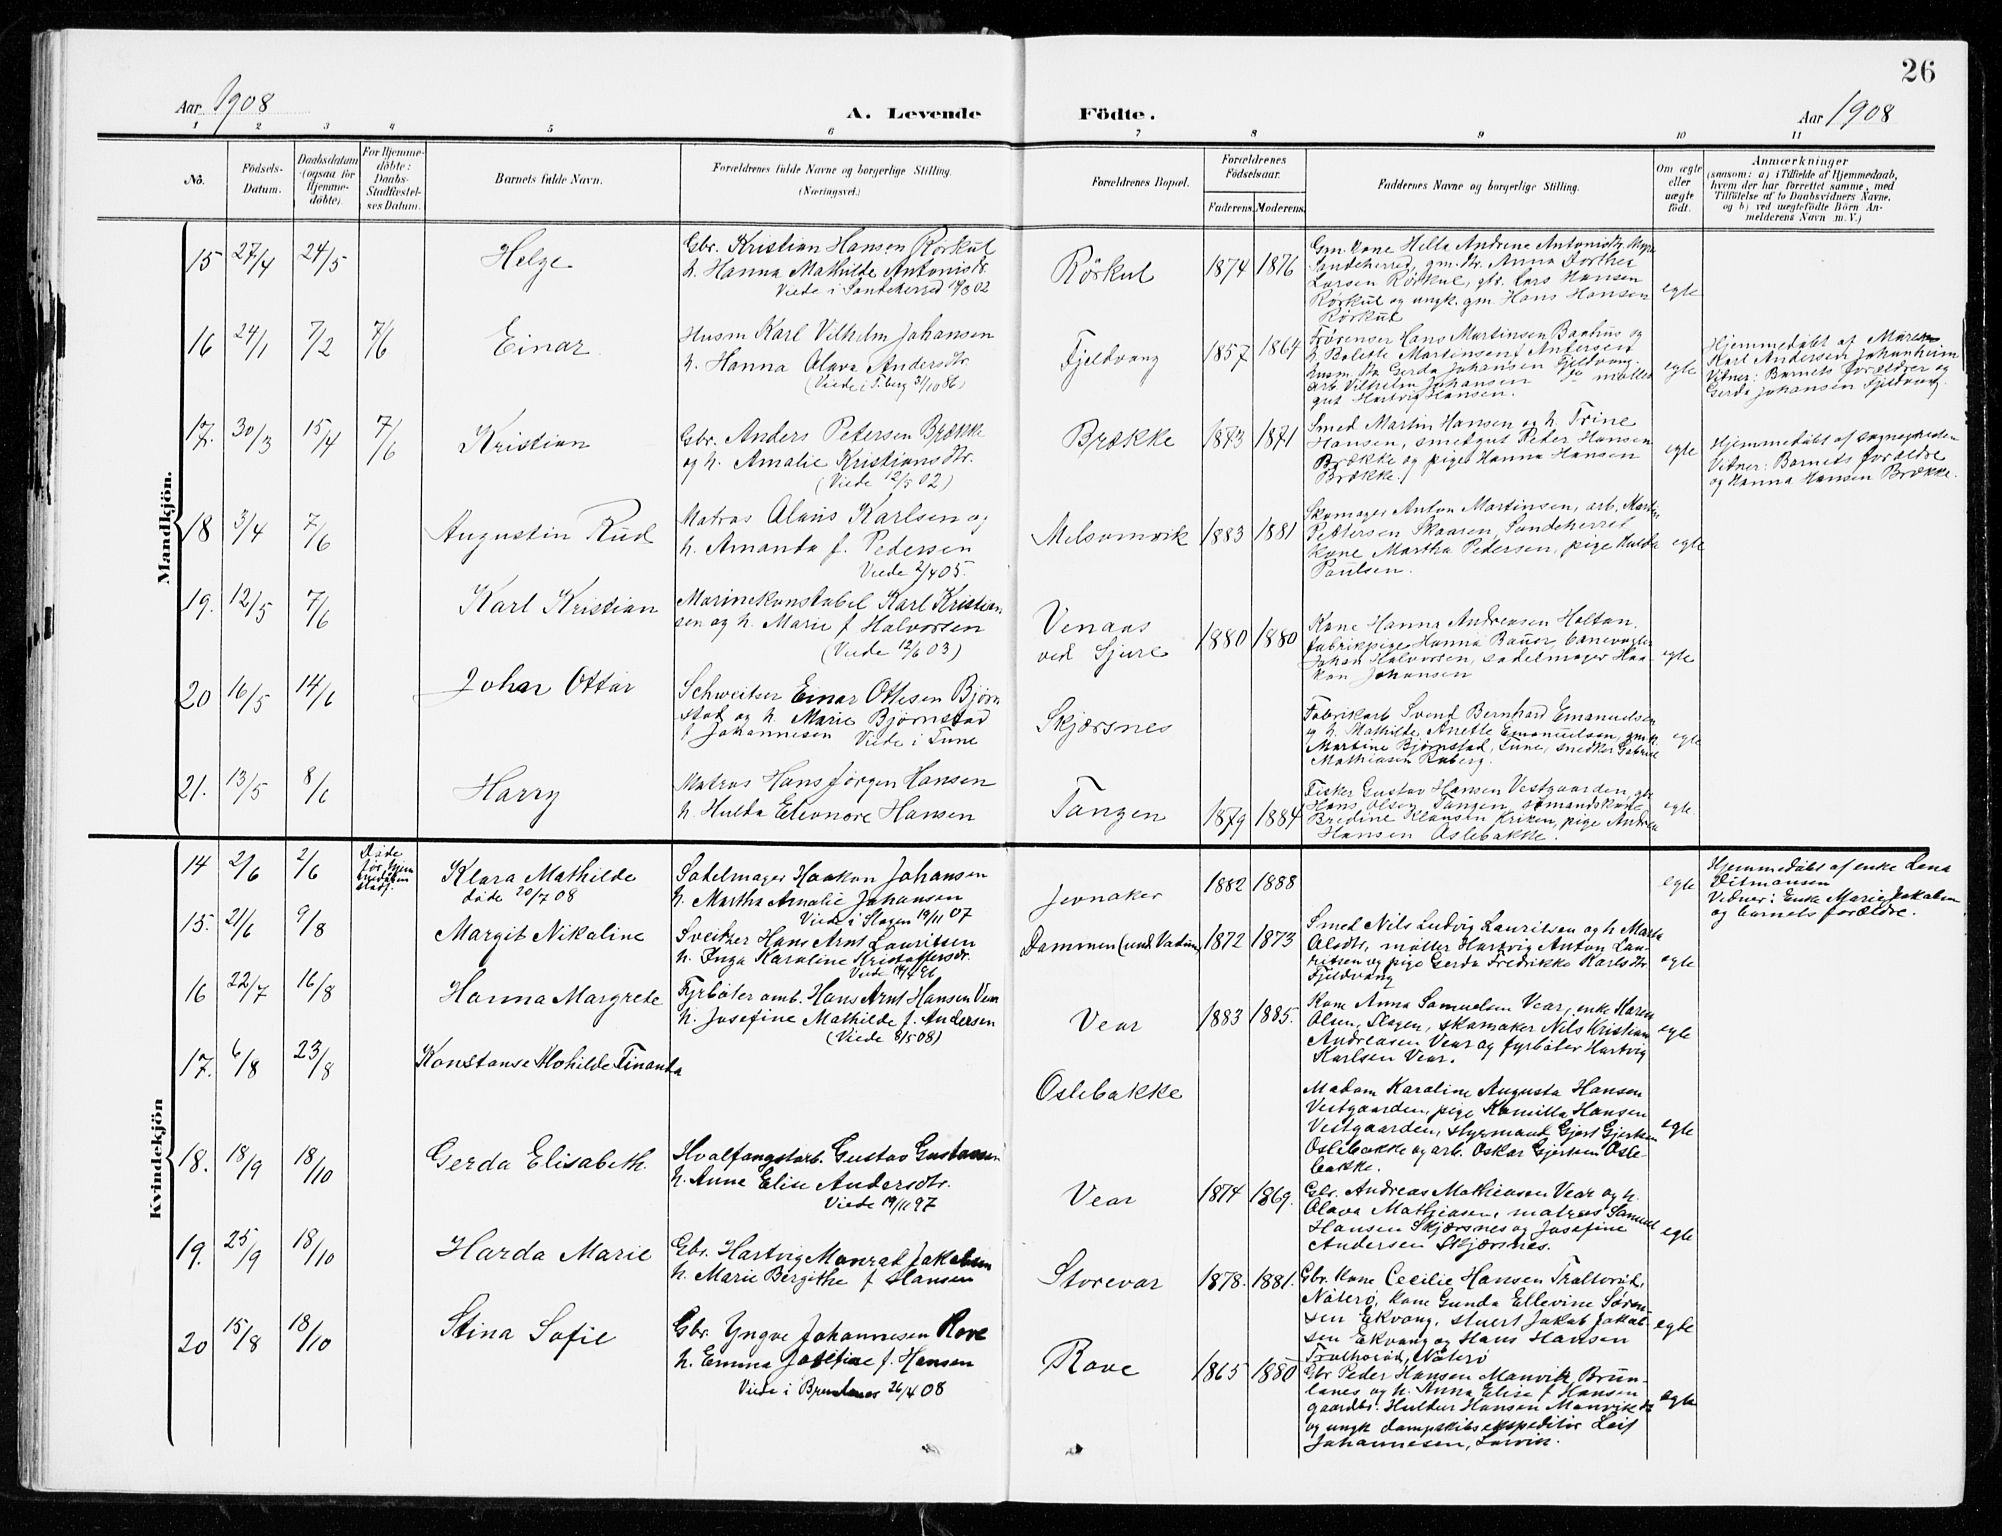 26
Aar 1908
A. Levende Födte.
Aar 1908
1 2 3 4 5 6 7 8 9 10 11
No.
Födsels-
Datum.
Daabsdatum
(ogsaa for
Hjemme-
döbte).
For Hjemme-
döbte:
Daabs-
Stadfæstel-
ses Datum.
Barnets fulde Navn.
Forældrenes fulde Navne og borgerlige Stilling.
(Næringsvei.)
Forældrenes Bopæl.
Forældrenes
Födselsaar.
Faderens. Moderens.
Faddernes Navne og borgerlige Stilling.
Om ægte
eller
uægte
født.
Anmærkninger
(saasom: a) i Tilfælde af Hjemmedaab,
hvem der har forrettet samme, med
Tilföielse af to Daabsvidners Navne,
og b) ved uægtefödte Börn An-
melderens Navn m. V.)
Mandkjön.
15 27/4 24/5 Helge
Gbr. Kristian Hansen Rørkul
h. Hanna Mathilde Antonisdtr.
Viede i Sandeherred
Rørkul 1874 1876
Gm. kone Hella Andrine Antonisdtr.
Sandeherred, gm. dtr. Anna Dorthea
Larsen Rørkul, gbr. Lars Hansen
Rørkul og ungk. gm. Hans Hansen
Rørkul
egte
16 24/1 7/2 7/6 Einar
Husm Karl Vilhelm Johansen
h. Hanna Olava Andersdtr.
(Viede i T.berg 31/10 86)
Fjeldvang 1857 1864
Hans Martinsen og
h. Bolette Martinsen, Andersen
husm. dtr. Gerda Johansen Fjeldvang
arb. Vilhelm Johansen
gut Hartvig Hansen.
egte
Hjemmedøbt af
Karl Andersen Johanheim
Vitner: Barnets forældrer og
Gerda Johansen Fjeldvang.
17. 30/3 15/4 7/6 Kristian
Gbr. Anders Petersen Brække
og h. Amalie Kristiansdtr.
(Viede 12/5 02)
Brække 1873 1871
Smed Martin Hansen og h. Trine
Hansen, smedgut Peder Hansen
Brække og pige Hanna Hansen
Brække.
egte
Hjemmedøbt af sognepresten
Vitner: Barnets forældre
og Hanna Hansen Brække.
18 3/4 7/6 Augustin Rud
Matros Olaus Karlsen og
h. Amanda f. Pedersen
Viede 2/4 05.
Melsomvik 1883 1881
Skomager Anton Martinsen, arb. Martin
Pettersen Skaaren, Sandeherred
Kone Martha Pedersen, pige Hulda
Paulsen.
egte
19. 12/5 7/6 Karl Kristian
Marinekonstabel Karl Kristian
sen og h. Marie f Halvorsen
(Viede 12/6 03)
Venaas
ved Sjure
1880 1880
Kone Hanna Andreasen Holtan,
fabrikpige Hanna Bauer, banevogter
Johan Halvorsen, sadelmager Haa-
kon Johansen
egte
20 16/5 14/6 Johan Ottar
Schweitser Einar Ottesen Bjørn
stad og h. Marie Bjørnstad
f Johannesen Viede i Tune
Skjærsnes
Fabrikarb Svend Bernhard Emanuelsen
og h. Mathilde, Anette Emanuelsen,
Martine Bjørnstad, Tune, snedker Gabriel
Mathiasen Roberg.
egte
21. 13/5 8/6 Harry
Matros Hans Jørgen Hansen
h. Hulda Eleonore Hansen
Tangen 1879 1884
Fisker Gustav Hansen Vestgaarden, gbr
Hans Olsen Tangen, sømandskone
Bredine Klausen Kriken, pige Andrea
Hansen Oslebakke.
egte
Kvindekjön
14 2/6 2/6
Døde
før hjem
medaaben
stadf.
Klara Mathilde
døde 20/7 08
Sadelmager Haakon Johansen
h. Martha Amalie Johansen
Viede i Slagen 19/11 07
Jernaker 1882 1888
egte
Hjemmedøbt af enke Lena
Ditmansen
Vidner: Enke Marie Jakobsen
og barnets forældre.
15. 21/6 9/8 Margit Nikoline
Sveitzer Hans Arnt Lauritsen
h. Inga Karoline Kristoffersdtr.
Viede
Dammen (und. Vadum) 1872 1873
Smed Nils Ludvig Lauritsen og h. Marta
Olsdtr, møller Hartvig Anton Lau-
ritsen og pige Gerda Fredrikke Karlsdtr
Fjeldvang
egte
16 22/7 16/8 Hanna Margrete
Fyrbøter amb. Hans Arnt Hansen Vear
h. Josefine Mathilde f. Andersen
(Viede 8/5 08)
Vear 1883 1885.
Kone Anna Samuelsen Vear, enke Maren
Olsen, Slagen, skomaker Nils Kristian
Andreasen Vear og fyrbøter Hartvig
Karlsen Vear.
egte
17. 6/8 23/8 Konstanse Mohilde Finanda
Oslebakke
Madam Karoline Augusta Hansen
Vestgaarden, pige Kamilla Hansen
Vestgaarden, styrmand Gjert Gjertsen
Oslebakke og arb. Oskar Gjertsen Osle-
bakke.
egte
18. 18/9 18/10 Gerda Elisabeth.
Hvalfangstarb. Gustav Gustavsen
h. Anne Elise Andersdtr.
Viede 19/11 97
Vear 1874 1869.
Gbr. Andreas Mathiasen Vear og h.
Olava Mathiasen, matros Samuel
Hansen Skjærsnes og Josefine
Andersen Skjærsnes.
egte
19. 25/9 18/10 Harda Marie
Gbr. Hartvig Monrad Jakobsen
h. Marie Bergithe f Hansen
Storevar 1878. 1881.
Gbr. kone Cecilie Hansen Tralløród,
Nøterø, kone Gunda Ellevine Søren-
sen Ekvang, stuert Jakob Jakob-
sen Ekvang og Hans Hansen
Nøterø
egte
20 15/8 18/10 Stina Sofie
Gbr. Yngve Johannesen Rove
h. Emma Josefine f. Hansen
Viede i Brunlanes 26/4 08
Rove 1865 1880
Gbr Peder Hansen Manvik, Brun-
lanes og h. Anna Elise f Hansen
gaardbr. Huldur Hansen Manvik
og ungk dampskibsexpeditør Leif
Johannesen, Larvik.
egte